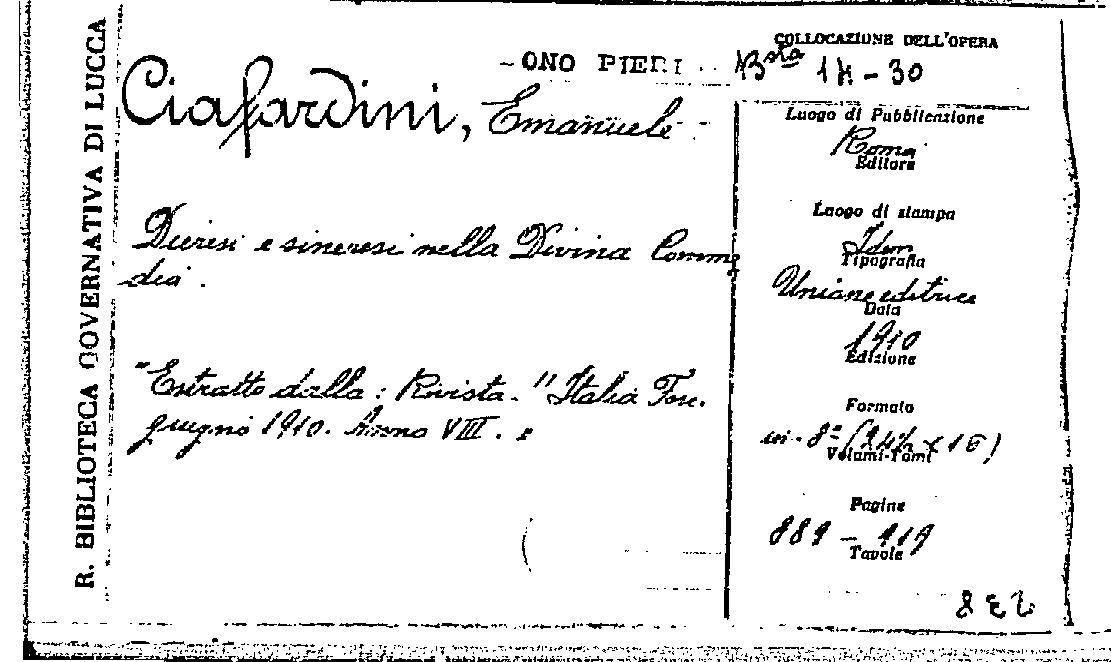 R. BIBLIOTECA GOVERNATIVA DI LUCCA
ONO PIERI
COLLOCAZIONE DELL'OPERA
Bsta 14-30
Ciafardini, Emanuele
Dieresi e sineresi nella Divina Comme
dia.
"Estratto dalla: Rivista. "Italia
giugno 1910. Anno VIII.
Luogo di Pubblicazione
Roma
Editore
Luogo di stampa
Idem
Tipografia
Unione editrice
Data
1910
Edizione
Formato
in-8º (24½ x 16)
Volumi-Tomi
Pagine
889 - 919
Tavole